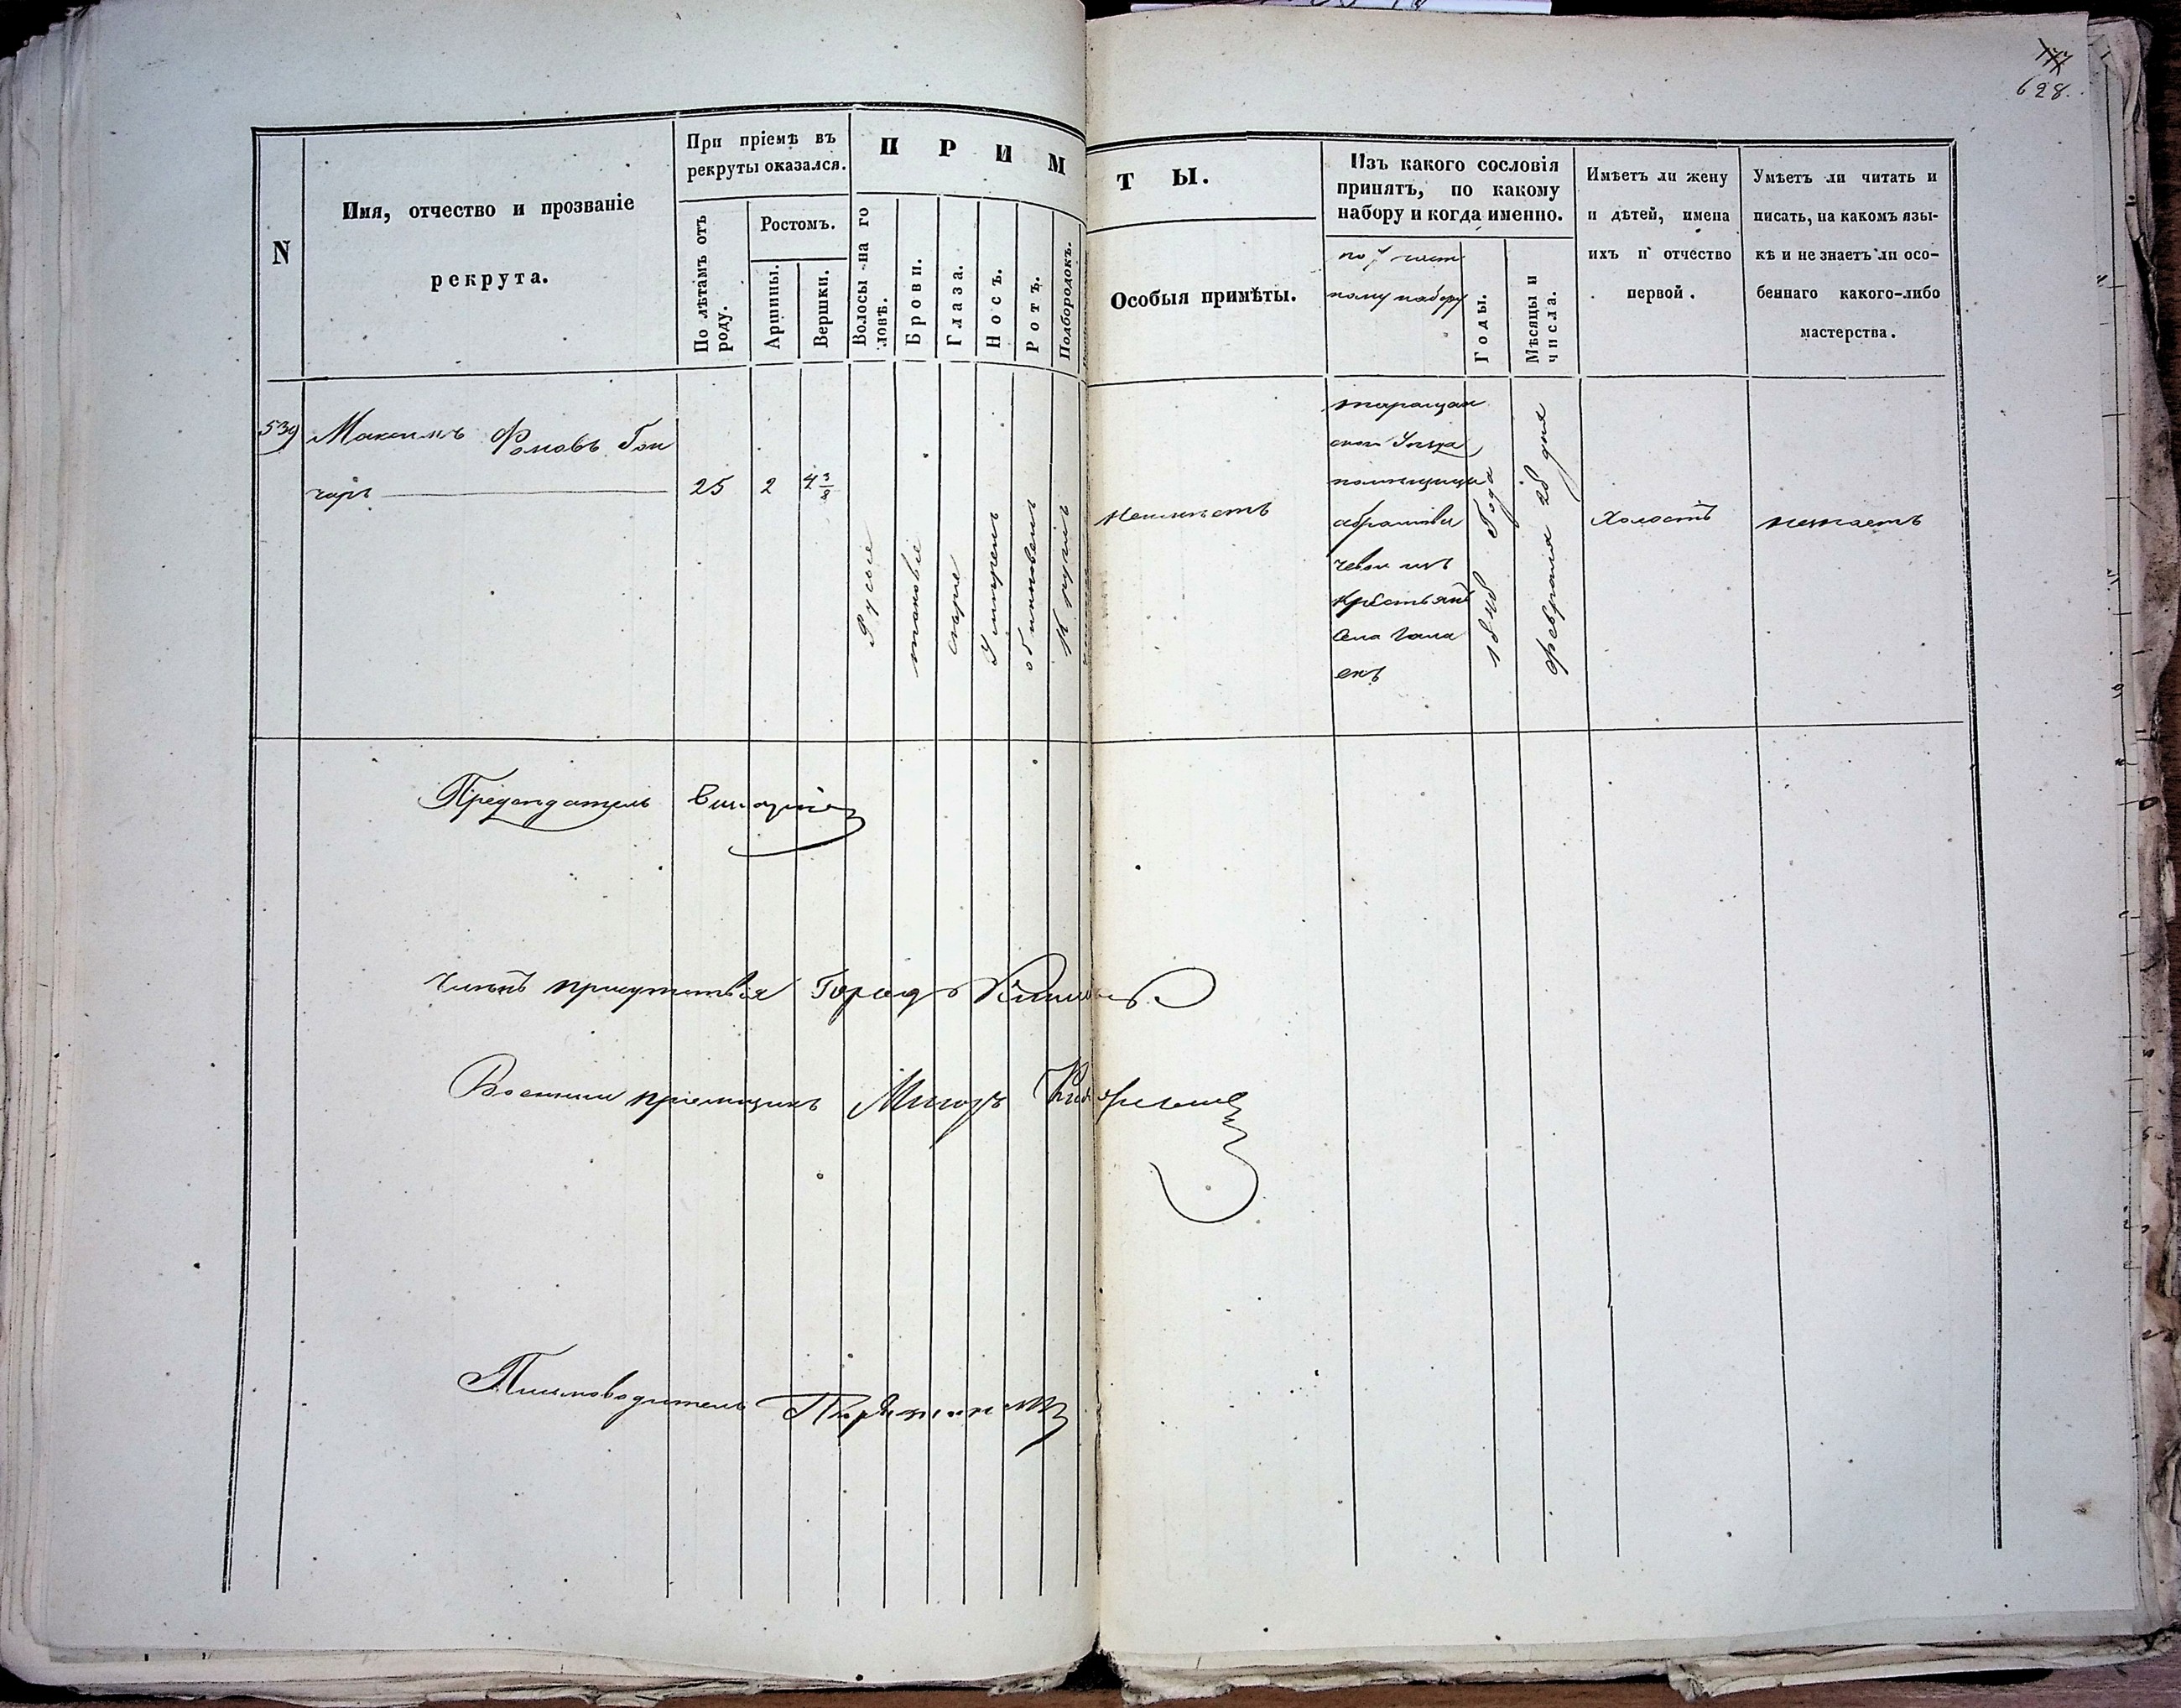 177
628.
N
Имя, отчество и прозваніе
рекрута.
При пріемѣ въ
рекруты оказался.
По лѣтамъ отъ
роду.
Ростомъ.
Аршины.
Вершки.
П Р И М
Волосы на го
ловѣ.
Брови.
Глаза.
Носъ.
Ротъ.
Подбородокъ.
Т Ы.
Особыя примѣты.
Изъ какого сословія
принятъ, по какому
набору и когда именно.
по 7 част
ному набору
Годы.
Мѣсяцы и
числа.
Имѣетъ ли жену
и дѣтей, имена
ихъ и отчество
первой.
Умѣетъ ли читать и
писать, на какомъ язы-
кѣ и не знаетъ ли осо-
беннаго какого-либо
мастерства.
539
Максимъ Фомовъ Гон
чаръ
25
2
4 3/8
Русые
таковые
серые
Умѣренъ
обыкновенъ
Круглъ
неимѣетъ
таращан
ского Уезда
помещицы
абрамови
чевой изъ
крестьянъ
села
1848 Года
февраля 28 дня
Холостъ
незнаетъ
Председатель
Членъ присутствія
Военный пріемщикъ
Письмоводитель